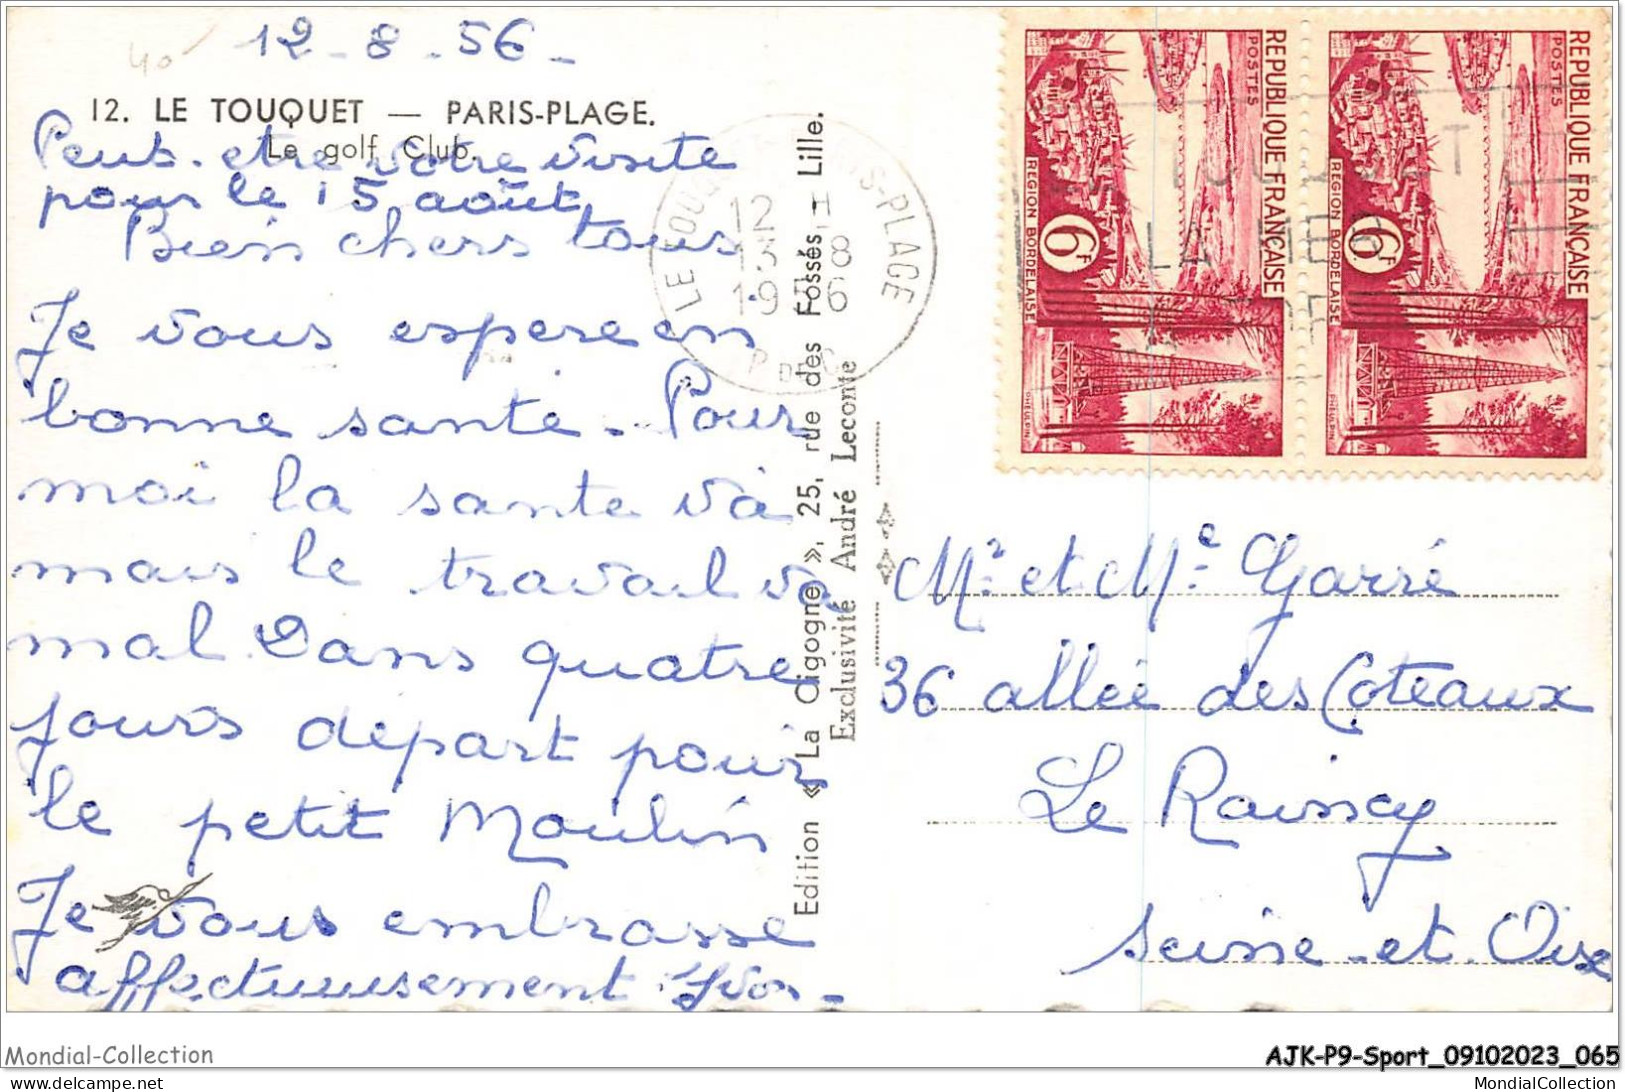 40
12 - 8 - 56 -
12. LE TOUQUET — PARIS-PLAGE.
Le golf Club.
Peut-etre votre visite
pour le 15 août
Bien chers tous
Je vous espere en
bonne sante - Pour
moi la sante và
mais le travail va
mal. Dans quatre
jours depart pour
le petit Moulin
Je vous embrasse
affectueusement
Edition « La Cigogne », 25, rue des Fossés - Lille.
Exclusivité André Leconte
LE TOUQUET PARIS-PLAGE
12 H
13 8
1956
P. DE C.
REPUBLIQUE FRANÇAISE
POSTES
6F
REGION BORDELAISE
PHEULPIN
REPUBLIQUE FRANÇAISE
POSTES
6F
REGION BORDELAISE
PHEULPIN
TOUQUET
LA MER
Mr et Me Garré
36 allée des Coteaux
Le Raincy
Seine-et-Oise
Mondial-Collection
AJK-P9-Sport_09102023_065
MIKE-PILLON-SHOP
MondialCollection